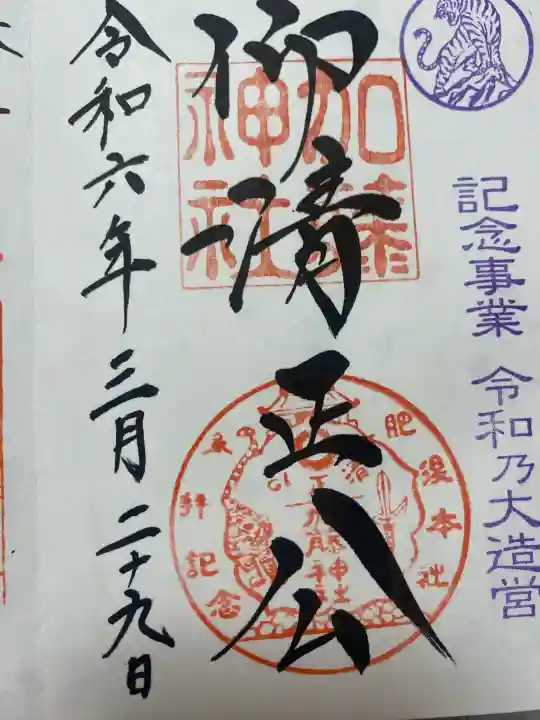 記念事業 令和乃大造営
仰清正公
加藤神社
肥後本社
参拝記念
令和六年三月二十九日